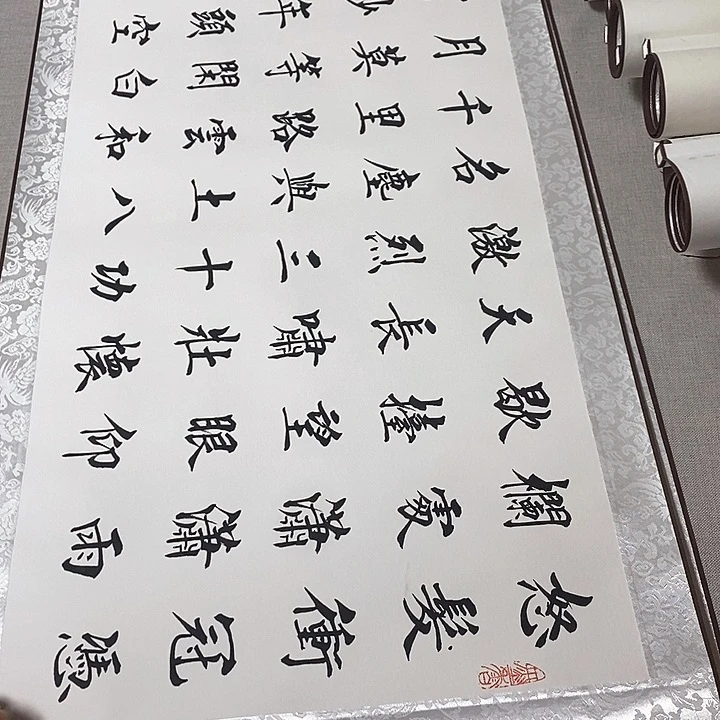 怒髮衝冠憑
欄處瀟瀟雨
歇擡望眼仰
天長嘯壯懷
激烈三十功
名塵與土八
千里路雲和
月莫等閑白
少年頭空